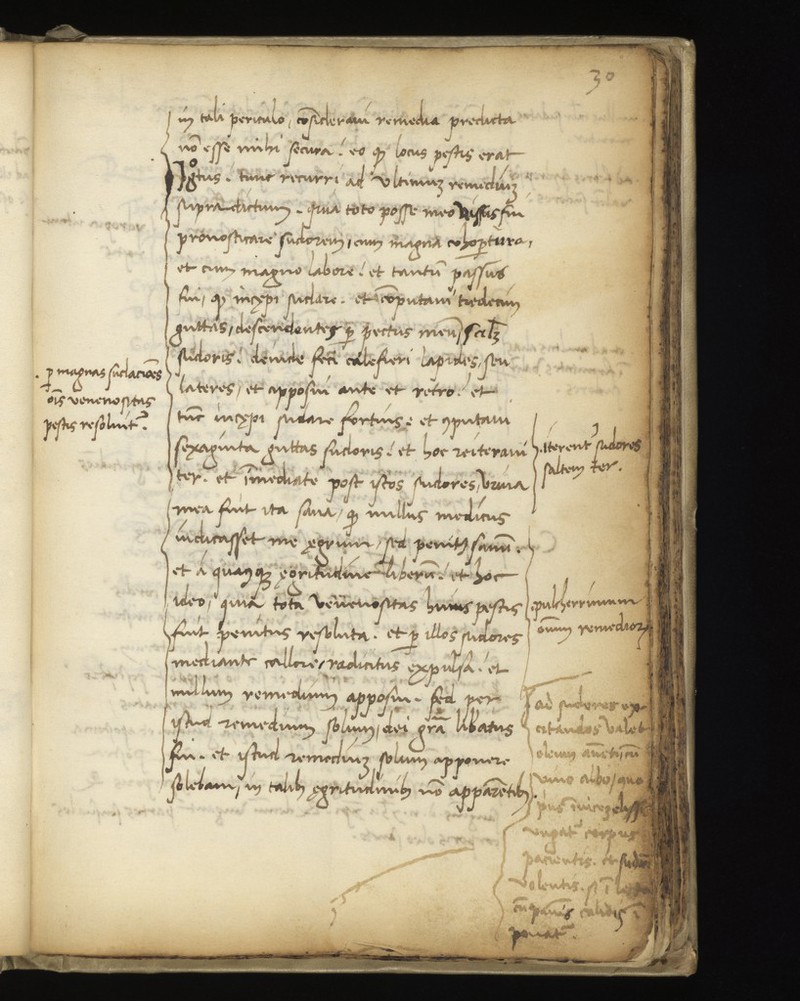 30
in tali periculo, cõsideraui remedia predicta
nõ esse mihi secura: eo qȝ locus pestis erat
tunc recurri ad vltimuȝ remediuȝ
supradictum. qua toto posse meo nissus fui
pronosticare sudorem, cum magna cohoꝑtura,
et cum magno labore: et tantũ passus
fui, qȝ incępi sudare: et cõputaui tredecim
guttas, descendentes ꝑ pectus meũ, scilȝ
sudoris. deinde feci calefieri lapides, seu
lateres, et apposui ante et retro: et
tũc incępi sudare fortius: et ꝯputaui
sexaginta guttas sudoris: et hoc reiteraui
ter. et ĩmediate post istos sudores, vrina
mea fuit ita sana, qȝ nullus medicus
iudicasset me ęgrum, sed penitꝰ sanũ.
et à quacũqȝ ęgritudine liberũ: et hoc
ideo, quia tota venenositas huius pestis
fuit penitus resoluta. et ꝑ illos sudores
mediante callore, radicitus expulsa: et
nullum remedium apposui. sed per
istud remedium solum, dei grã libatus
fui. et istud remediuȝ solum apponere
solebam, in talibꝰ ęgritudinibꝰ nõ apparẽtibꝰ.
ꝑ magnas sudaciões
oĩs venenositas
pestis resoluit᷑.
iterent᷑ sudores
saltem ter.
pulcherrimum
oĩum remediorꝝ
ad sudores ex-
citandos valet
oleum anẽti, cũ
vino albo, quo
vngat᷑ corpus
pacientis. et
volentis. ĩ
calidis ĩ
ponat᷑.